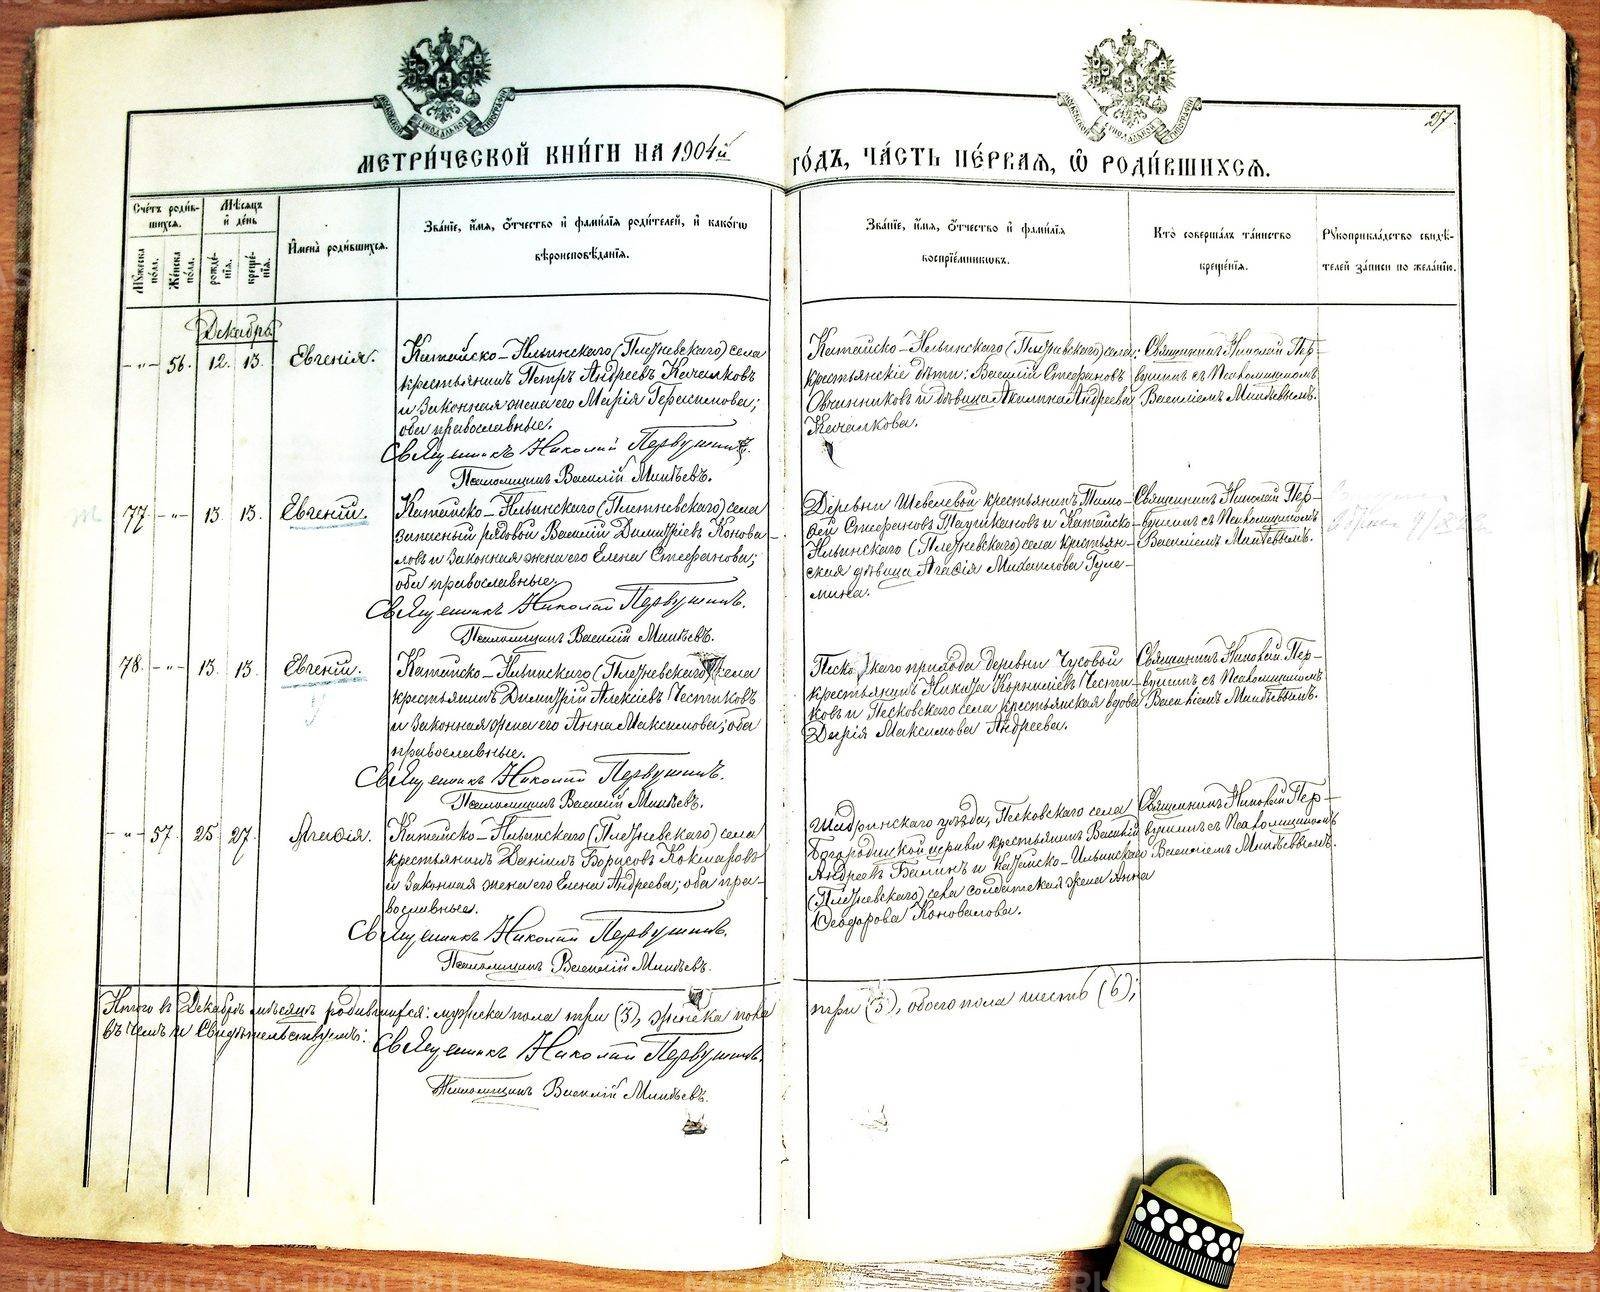 МОСКОВСКОЙ СѴНОДАЛЬНОЙ ТИПОГРАФІИ
МОСКОВСКОЙ СѴНОДАЛЬНОЙ ТИПОГРАФІИ
27.
МЕТРИ́ЧЕСКОЙ КНИ́ГИ НА 1904й ГО́ДЪ, ЧА́СТЬ ПЕ́РВАЯ, Ѡ҆ РОДИ́ВШИХСЯ.
Сче́тъ роди́в-
шихся.
Мꙋжеска по́ла.
Же́нска по́ла.
Мѣ́сяцъ и҆ де́нь
рожде́нїя.
креще́нїя.
И҆мена̀ роди́вшихся.
Зва́нїе, и҆́мя, ѻ҆́тчество и҆ фами́лїя роди́телей, и҆ како́гѡ
вѣроисповѣ́данїя.
Зва́нїе, и҆́мя, ѻ҆́тчество и҆ фами́лїя
воспрїе́мникѡвъ.
Кто̀ соверша́лъ та́инство
креще́нїя.
Рꙋкоприкла́дство свидѣ́-
телей за́писи по жела́нїю.
Декабрь
-„- 56. 12. 13. Евгенія.
Катайско-Ильинскаго (Плетневскаго) села
крестьянинъ Петръ Андреевъ Качалковъ
и законная жена его Марія Герасимова;
оба православные.
Священникъ Николай Первушинъ.
Псаломщикъ Василій Минѣевъ.
Катайско-Ильинскаго (Плетневскаго) села;
крестьянскіе дѣти: Василій Стефановъ
Овчинниковъ и дѣвица Акилина Андреева
Качалкова.
Священникъ Николай Пер-
вушинъ съ Псаломщикомъ
Василіемъ Минѣевымъ.
77 -„- 13. 13. Евгеній.
Катайско-Ильинскаго (Плетневскаго) села
запасный рядовой Василій Димитріевъ Конова-
ловъ и законная жена его Елена Стефанова;
оба православные.
Священникъ Николай Первушинъ.
Псаломщикъ Василій Минѣевъ.
Деревни Шевелевой крестьянинъ Тимо-
фей Стефановъ Ташкиновъ и Катайско-
Ильинскаго (Плетневскаго) села крестьян-
ская дѣвица Агафія Михаилова Гуле-
мина.
Священникъ Николай Пер-
вушинъ съ Псаломщикомъ
Василіемъ Минѣевымъ.
78. -„- 13. 13. Евгеній.
Катайско-Ильинскаго (Плетневскаго) села
крестьянинъ Димитрій Алексіевъ Честиковъ
и законная жена его Анна Максимова; оба
православные.
Священникъ Николай Первушинъ.
Псаломщикъ Василій Минѣевъ.
Песковскаго прихода деревни Чусовой
крестьянинъ Никита Корниліевъ Чести-
ковъ и Песковскаго села крестьянская вдова
Дарія Максимова Андреева.
Священникъ Николай Пер-
вушинъ съ Псаломщикомъ
Василіемъ Минѣевымъ.
-„- 57. 25 27. Агафія.
Катайско-Ильинскаго (Плетневскаго) села
крестьянинъ Даніилъ Борисовъ Кокшаровъ
и законная жена его Елена Андреева; оба пра-
вославные.
Священникъ Николай Первушинъ.
Псаломщикъ Василій Минѣевъ.
Шадринскаго уѣзда, Песковскаго села
Богородицкой церкви крестьянинъ Василій
Андреевъ Балинъ и Катайско-Ильинскаго
(Плетневскаго) села солдатская жена Анна
Ѳеодорова Коновалова.
Священникъ Николай Пер-
вушинъ съ Псаломщикомъ
Василіемъ Минѣевымъ.
Итого въ Декабрѣ мѣсяцѣ родившихся: мужеска пола три (3), женска пола три (3), обоего пола шесть (6);
въ чемъ и свидѣтельствуемъ:
Священникъ Николай Первушинъ.
Псаломщикъ Василій Минѣевъ.
METRIKI.GASO-URAL.RU